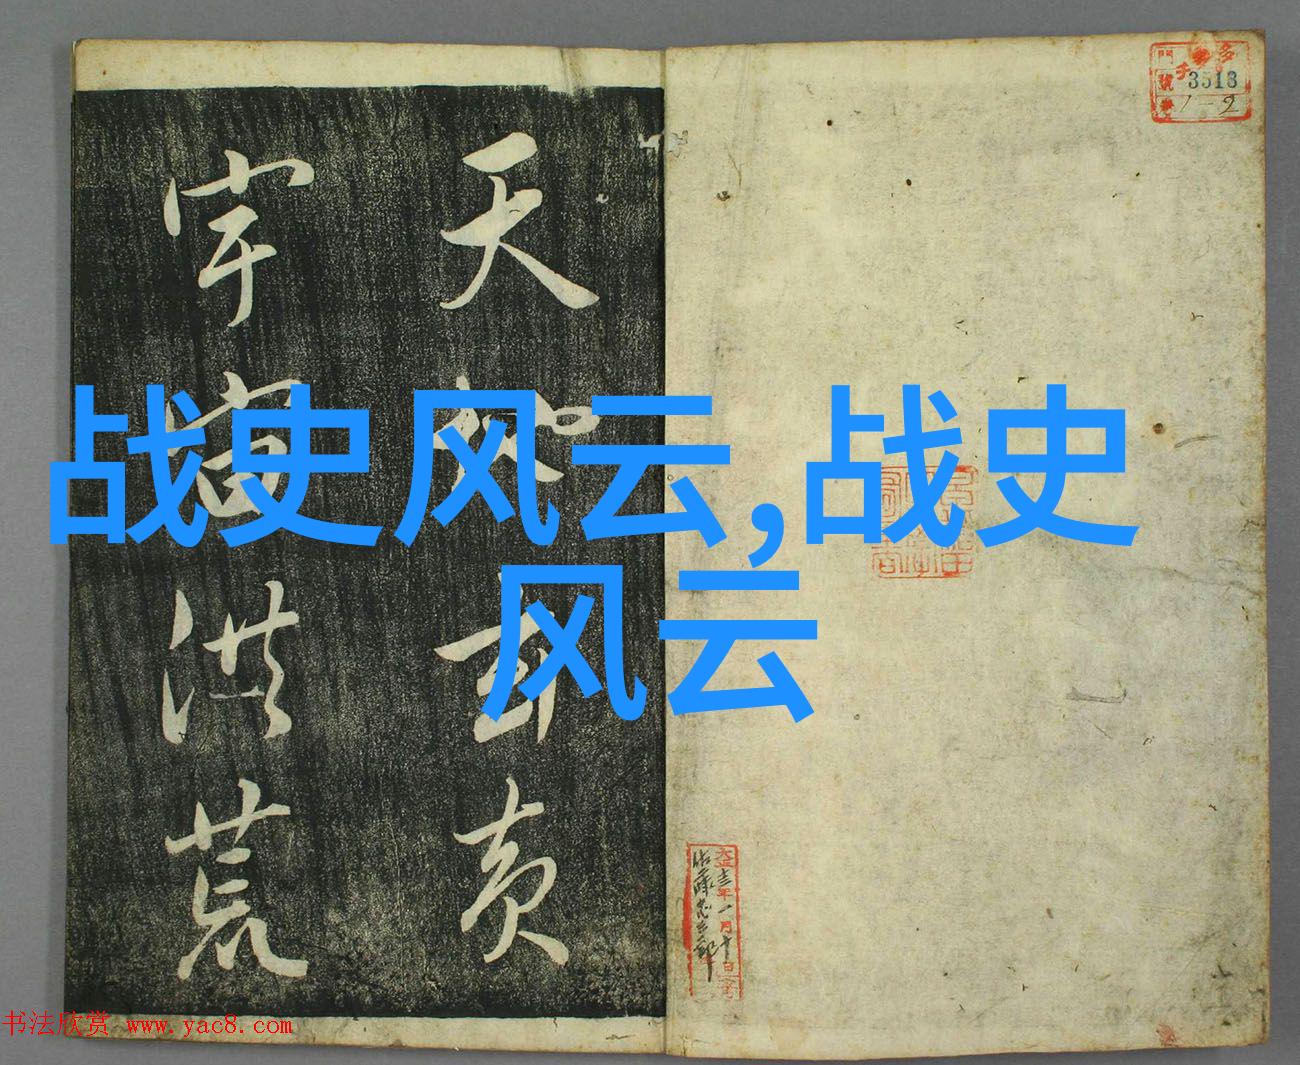 战史风云,战史
风云
天地玄黄
宇宙洪荒
1-2
书法欣赏 www.yac8.com